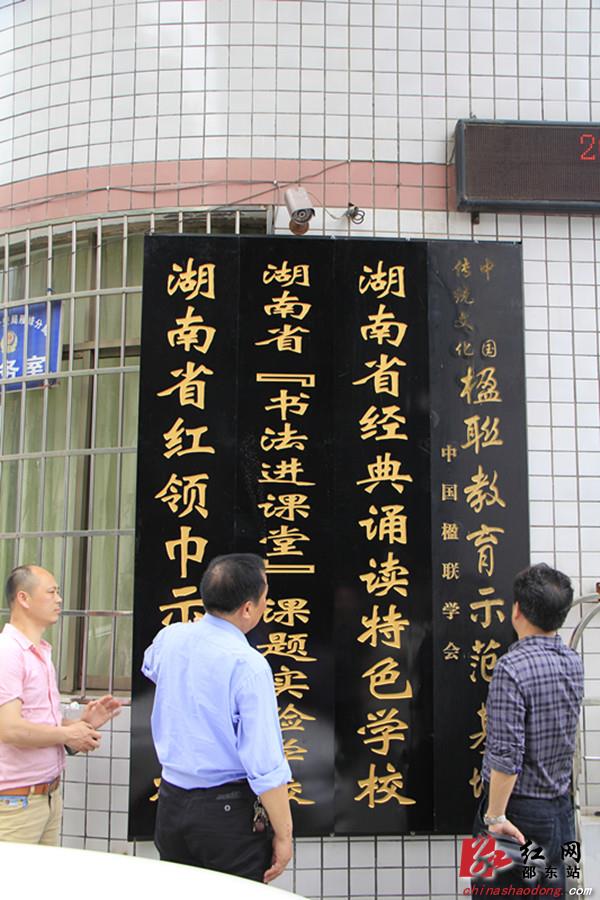 湖南省红领巾示
湖南省『书法进课堂』课题实验学校
湖南省经典诵读特色学校
中国
传统文化
楹联教育示范基地
中国楹联学会
2
务室
红网
邵东站
chinashaodong.com